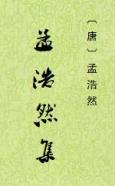 〔唐〕孟浩然
孟浩然集